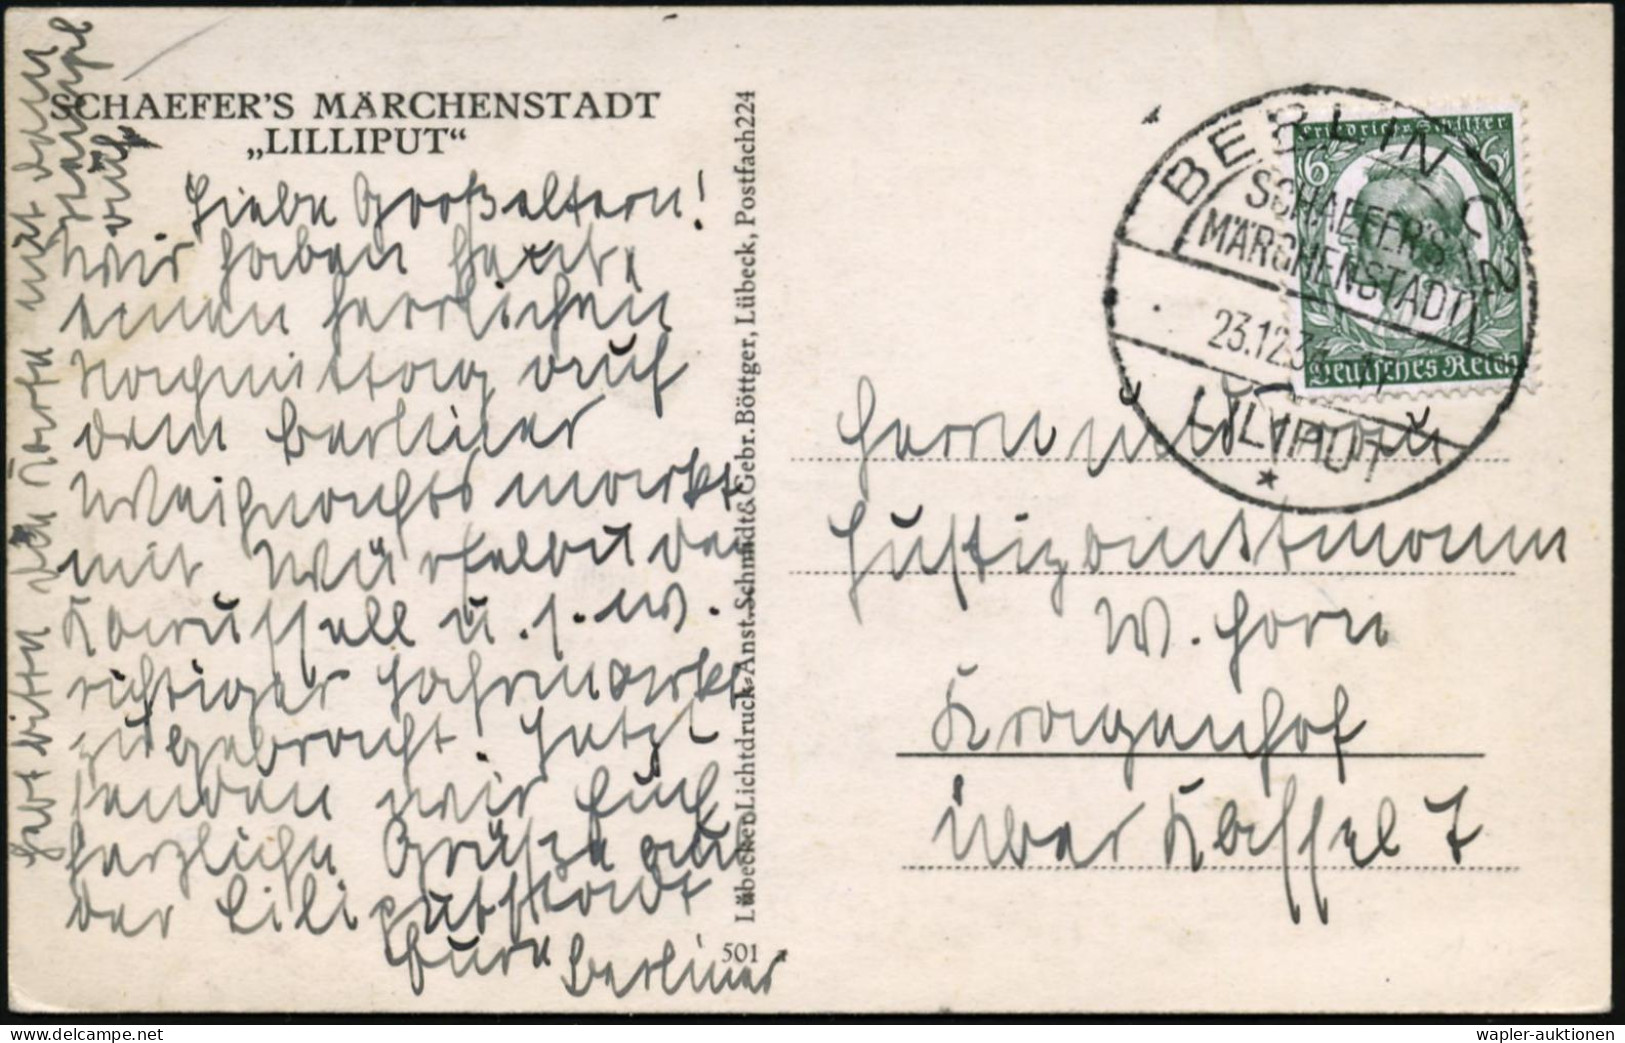 SCHAEFER'S MÄRCHENSTADT
„LILLIPUT“
Liebe Großeltern!
Wir haben heute
einen herrlichen
Nachmittag auf
dem Berliner
Weihnachtsmarkt
mit Würfelbuden
Karussell u.s.w.
richtiger Jahrmarkt
zugebracht. Jetzt
senden wir Euch
herzliche Grüße aus
der Liliputstadt
Eure Berliner
Habt bitte die Karte mit dem
Stempel
auf
Lübecker Lichtdruck-Anst. Schmidt & Gebr. Böttger, Lübeck, Postfach 224
501 a
BERLIN C 2
SCHAEFER'S
MÄRCHENSTADT
23.12.34
LILIPUT
*
Friedrich v. Schiller
6 6
Deutsches Reich
Herrn und Frau
Justizamtmann
W. Horn
Kragenhof
über Kassel 7
wapler-auktionen